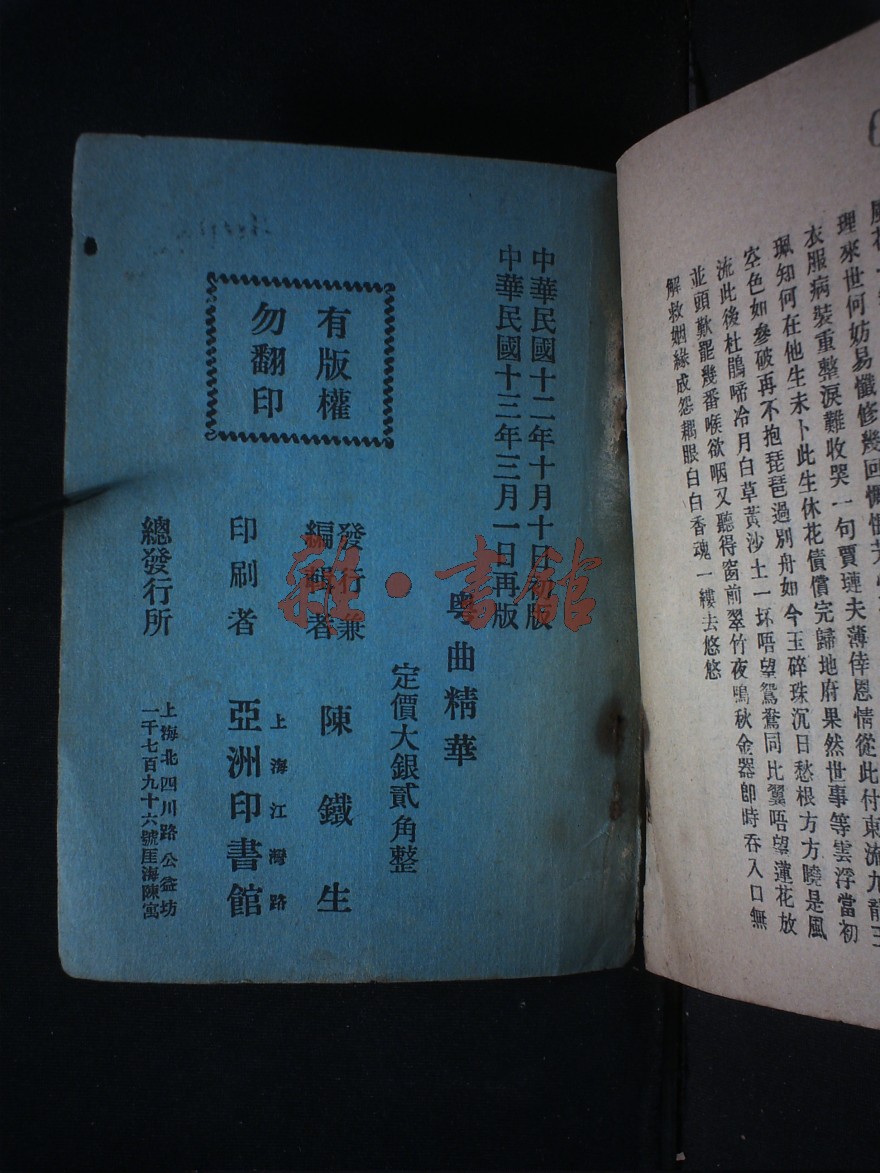 理來世何妨易懺修幾回
衣服病裝重整淚難收哭一句賈璉夫薄倖恩情從此付東流九龍
珮知何在他生未卜此生休花債償完歸地府果然世事等雲浮當初
空色如參破再不抱琵琶過別舟如今玉碎珠沉日愁根方方曉是風
流此後杜鵑啼冷月白草黃沙土一坏唔望鴛鴦同比翼唔望蓮花放
並頭歎罷幾番喉欲咽又聽得窗前翠竹夜鳴秋金器卽時吞入口無
解救姻緣成怨耦眼白白香魂一縷去悠悠
中華民國十二年十月十日初版
中華民國十三年三月一日再版
粵曲精華
定價大銀貳角整
有版權
勿翻印
發行兼
編輯者
陳鐵生
印刷者
上海江灣路
亞洲印書館
總發行所
上海北四川路公益坊
一千七百九十六號厓海陳寓
雜·書館